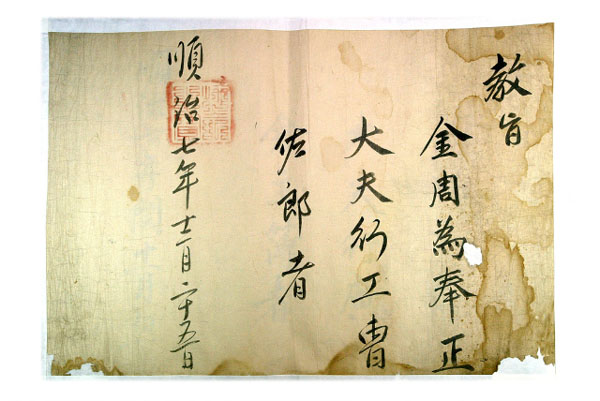 教旨
金周為奉正
大夫行工曺
佐郎者
順治七年十二月二十五日